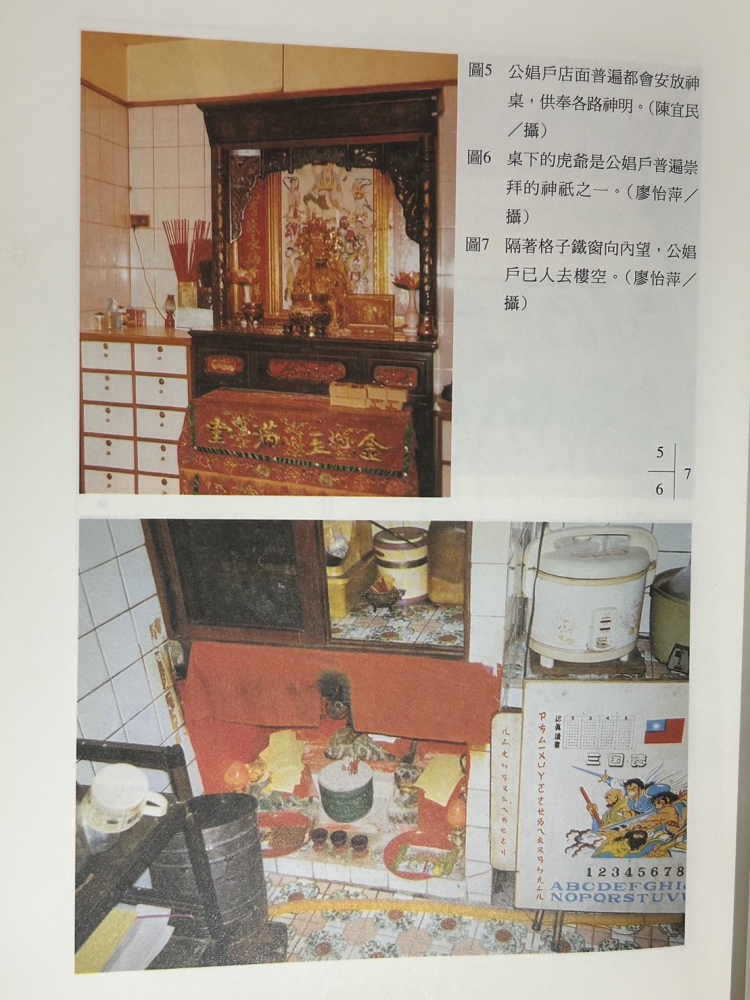 圖5 公娼戶店面普遍都會安放神
桌，供奉各路神明。（陳宜民
／攝）
圖6 桌下的虎爺是公娼戶普遍崇
拜的神祇之一。（廖怡萍／
攝）
圖7 隔著格子鐵窗向內望，公娼
戶已人去樓空。（廖怡萍／
攝）
5
6
7
金玉滿堂
三国志
12345678
ABCDEFGHI
NOPQRSTUV